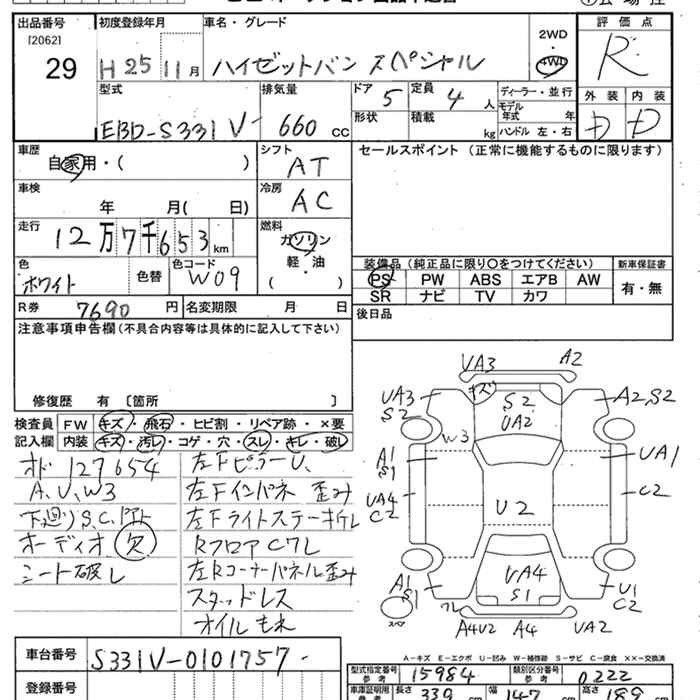 出品番号
[2062]
29
初度登録年月
H 25 11月
車名・グレード
ハイゼットバン スペシャル
2WD
4WD
評価点
R
外装 内装
D D
型式
EBD-S331V-
排気量
660 cc
ドア 5
形状
定員 4 人
積載 kg
ディーラー・並行
モデル年式 年
ハンドル 左・右
車歴
自家用・( )
シフト
AT
セールスポイント (正常に機能するものに限ります)
車検
年 月( 日)
冷房
AC
走行
12万7千653km
燃料
ガソリン
軽・油
( )
色
ホワイト
色替
色コード
W09
装備品 (純正品に限り○をつけてください)
新車保証書
PS PW ABS エアB AW
SR ナビ TV カワ
有・無
R券 7690 円
名変期限 月 日
後日品
注意事項申告欄(不具合内容等は具体的に記入して下さい)
修復歴 有 〔箇所 〕
検査員記入欄
FW キズ・飛石・ヒビ割・リペア跡・×要
内装 キズ・汚レ・コゲ・穴・スレ・キレ・破レ
オド 127654
A、U、W3
下廻りS.C.
オーディオ 欠
シート破レ
左FピラーU、
左Fインパネ 歪み
左Fライトステーキレ
RフロアCフレ
左Rコーナーパネル歪み
スタッドレス
オイルもれ
VA3 A2
キズ
UA3
S2
S2
UA2
A2,S2
W3
A1
S1
UA1
UA4
C2
U2
C2
A1
S1
UA4
S1
U1
C2
スペア
フレ
A4U2 A4 UA2
A-キズ E-エクボ U-凹み W-補修跡 S-サビ C-腐食 ××-交換済
車台番号
S331V-0101757-
型式指定番号
参考
15984
類別区分番号
参考
0222
登録番号
車庫証明用
参考
長さ 339 cm
幅 147 cm
高さ 189 cm